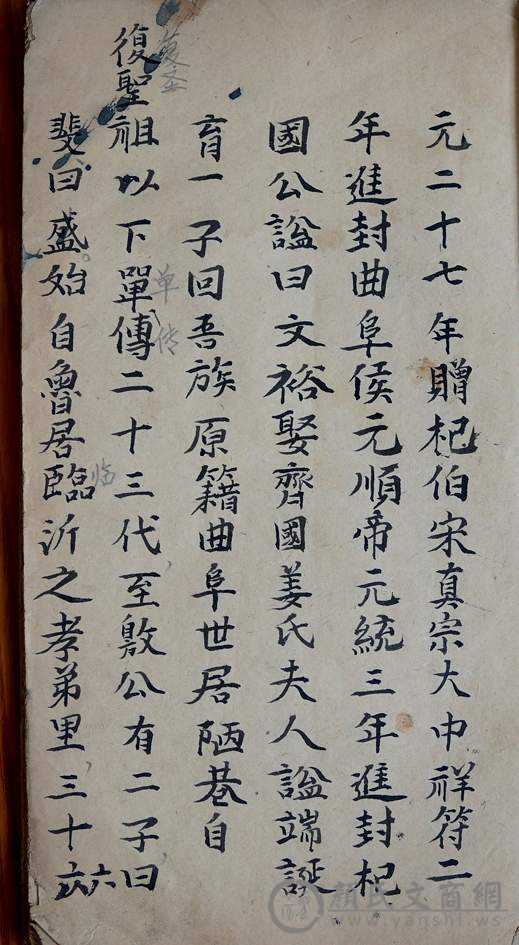 元二十七年贈杞伯宋真宗大中祥符二
年進封曲阜侯元順帝元統三年進封杞
國公諡曰文裕娶齊國姜氏夫人諡端誕
育一子回吾族原籍曲阜世居陋巷自
復聖祖以下單傳二十三代至敫公有二子曰
复圣
单传
斐曰盛始自魯居臨沂之孝弟里三十六
临
六
顏氏文商網
www.yanshi.ws